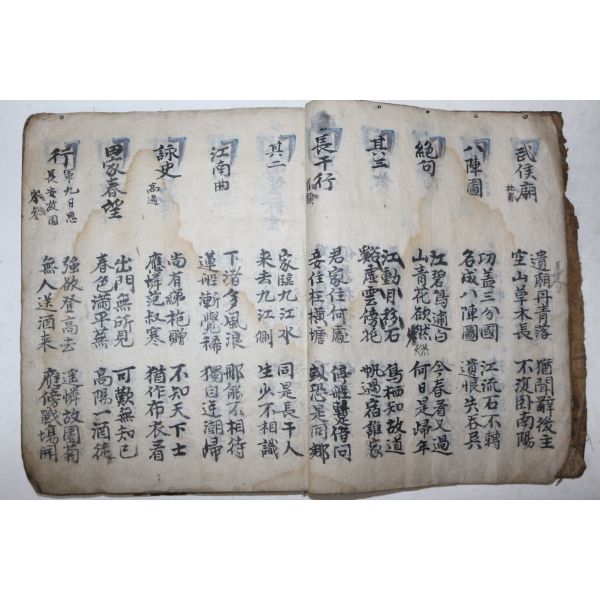 武侯廟 杜甫
遺廟丹青落
空山草木長
猶聞辭後主
不復卧南陽
八陣圖
功盖三分國
名成八陣圖
江流石不轉
遺恨失吞吳
絶句
江碧鳥逾白
山青花欲燃
今春看又過
何日是歸年
其三
江動月移石
谿虛雲傍花
鳥栖知故道
帆過宿誰家
長干行 崔顥
君家住何處
妾住在橫塘
停船暫借問
或恐是同鄉
其二
家臨九江水
來去九江側
同是長干人
生少不相識
江南曲
下渚多風浪
蓮船漸覺稀
那能不相待
獨自逆潮歸
詠史 高適
尚有綈袍贈
應憐范叔寒
不知天下士
猶作布衣看
田家春望
出門無所見
春色滿平蕪
可歎無知己
高陽一酒徒
行軍九日思長安故園 岑參
強欲登高去
無人送酒来
遙憐故園菊
應傍戰場開